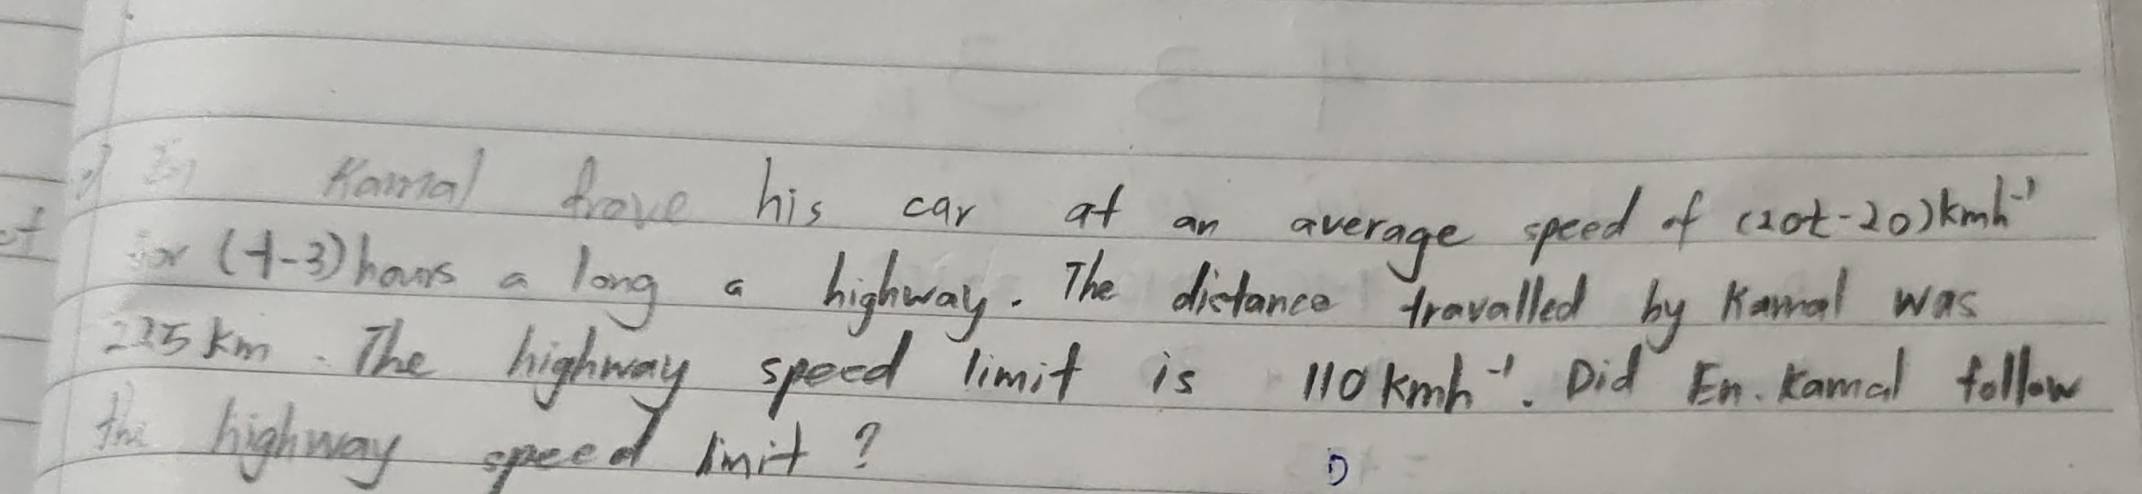 En Kamal drove his car at an average speed of (20t-20)kmh⁻¹
for (t-3) hours a long a highway. The distance travalled by Kamal was
225 km. The highway speed limit is 110 kmh⁻¹. Did En. Kamal follow
the highway speed limit?